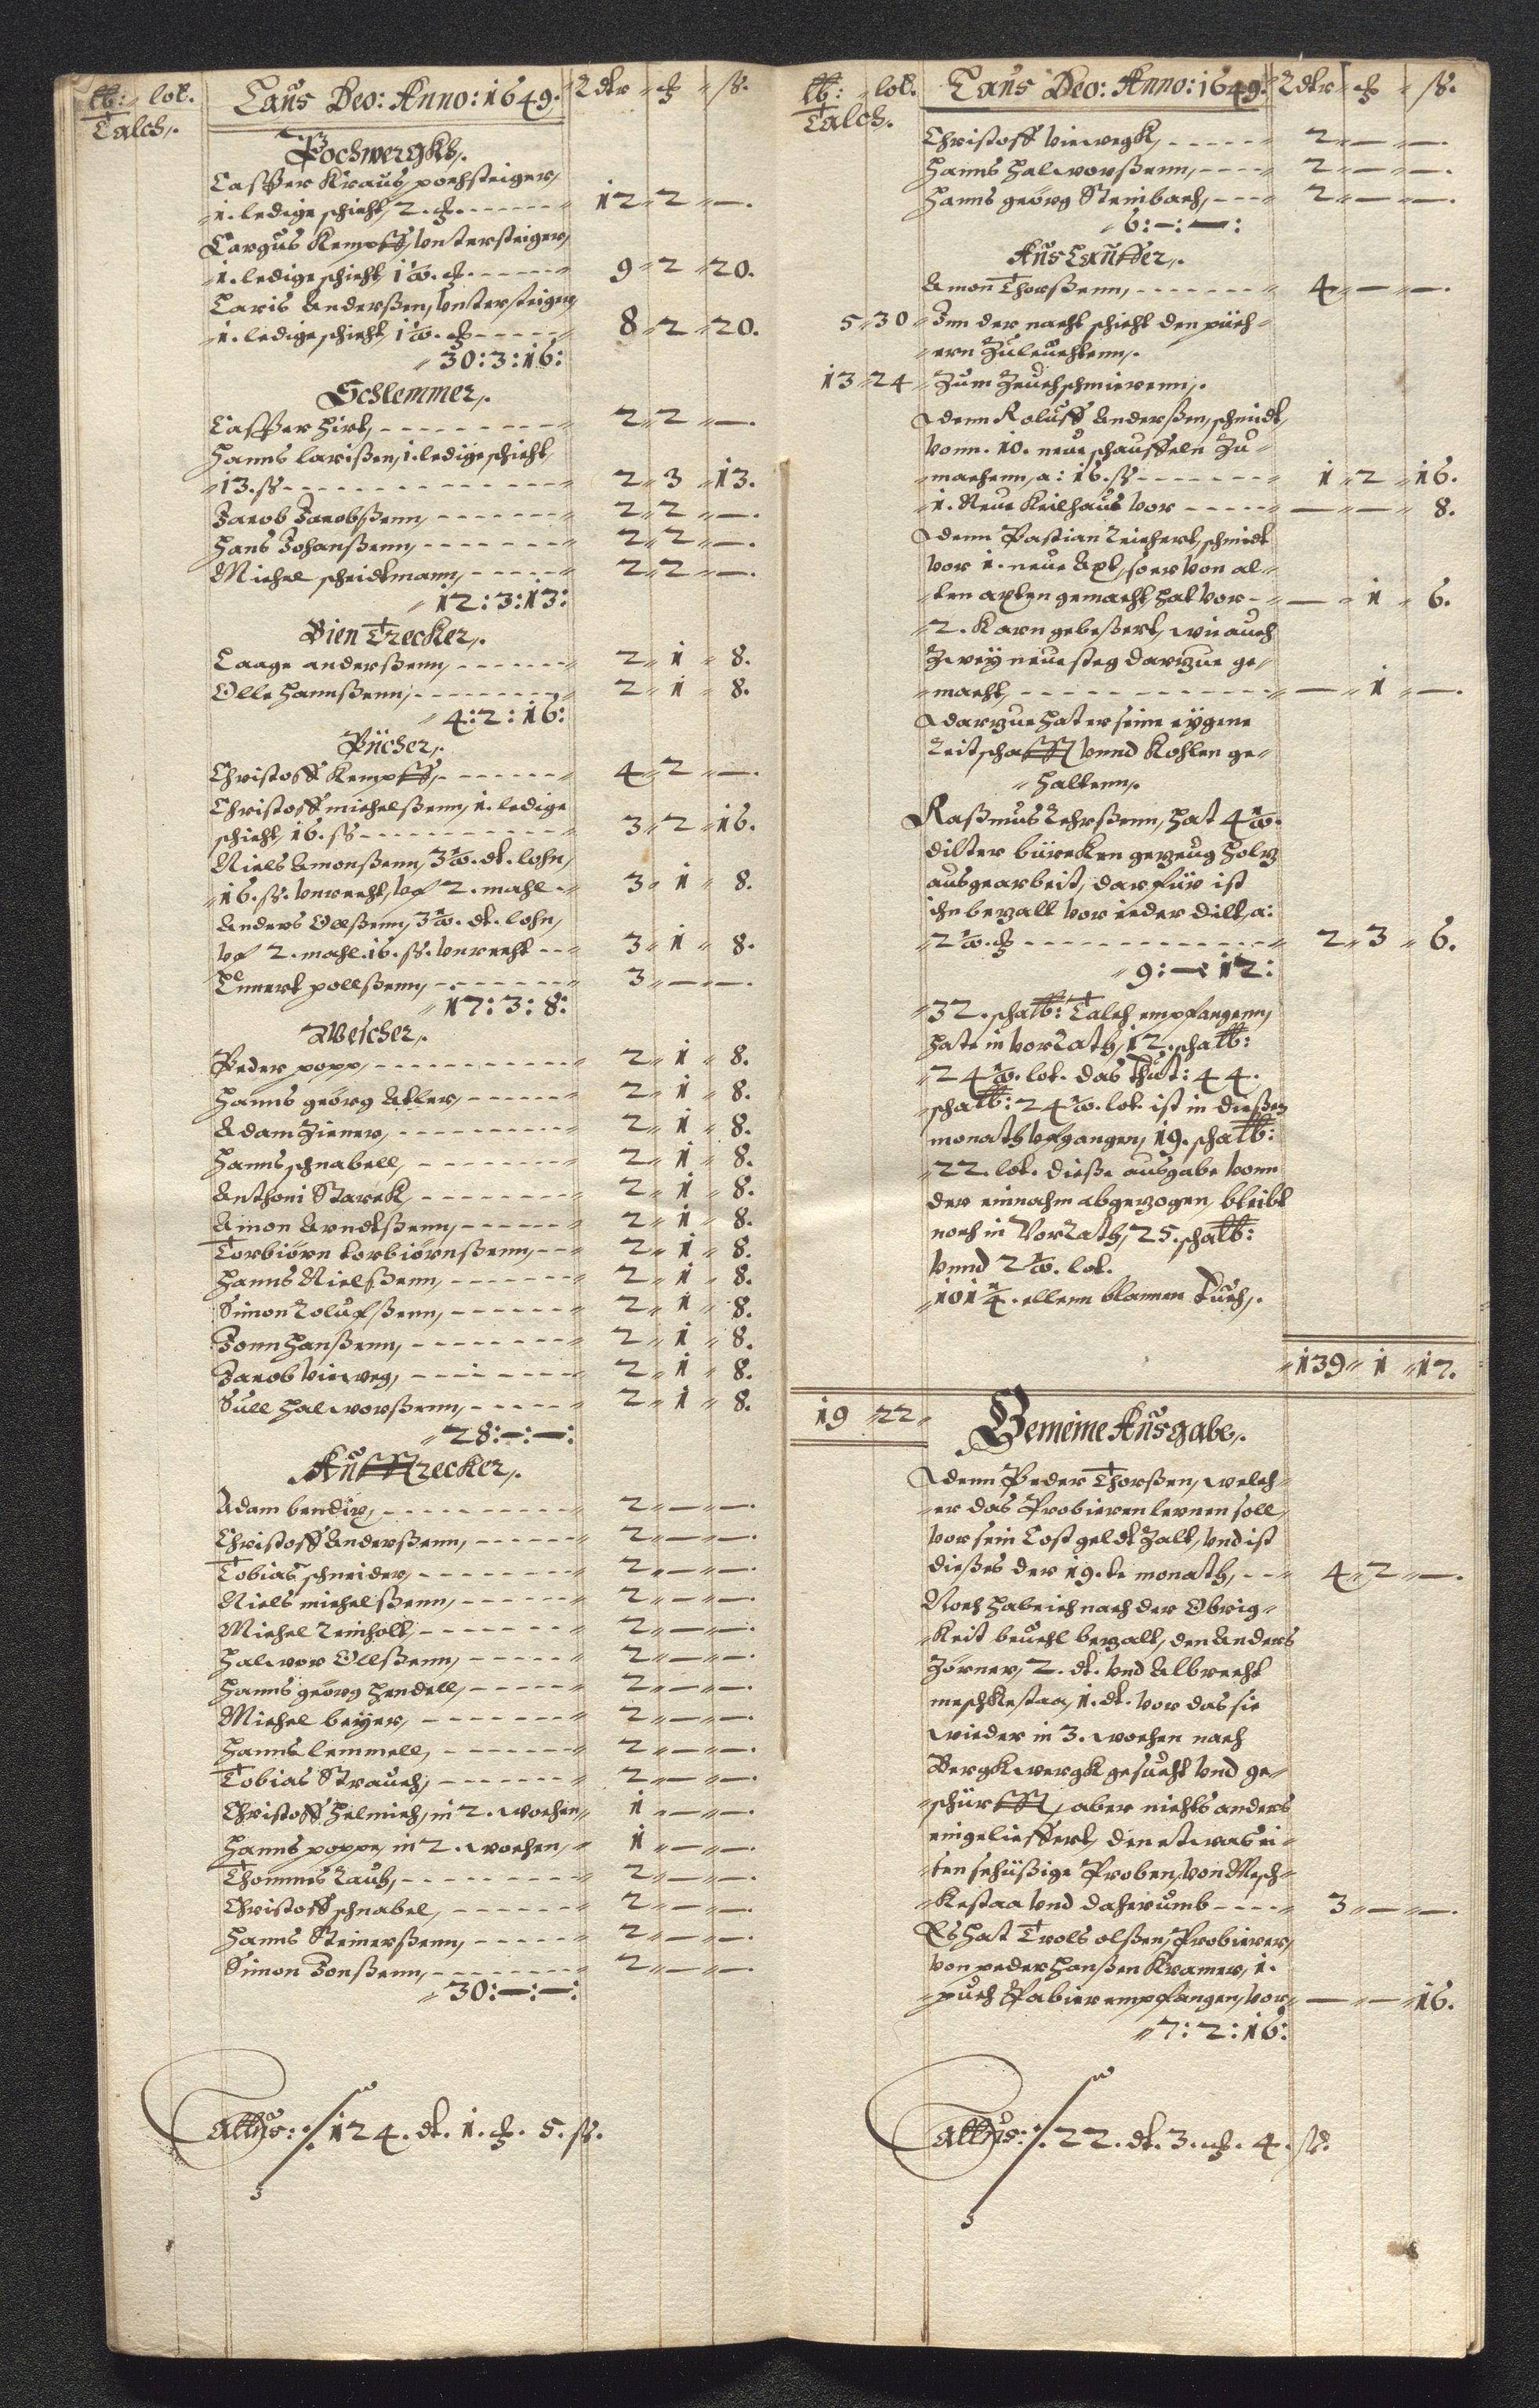 lb: lot. Laus Deo: Anno: 1649. Rdtr ß.
Talch.
Pochwergkh.
Casper Kraus, pochsteiger,
1. ledige schicht, 2. 12 2 —.
Largus Kempff, untersteiger,
1. ledige schicht, 9 2 20.
Laris Anderßen, untersteiger
1. ledige schicht, 8 2 20.
30: 3: 16:
Schlemmer.
Casper Hirt, 2 2 —.
Hanns larißen, 1. ledige schicht,
13. ß 2 3 13.
Jacob Jacobßenn, 2 2 —.
Hans Johanßenn, 2 2 —.
Michel scheidtmann, 2 2 —.
12: 3: 13:
Bien Trecker.
Laage anderßenn, 2 1 8.
Olle Hannßenn, 2 1 8.
4: 2: 16:
Pücher.
Christoff Kempff, 4 2 —.
Christoff michelßenn, 1. ledige
schicht, 16. ß 3 2 16.
Niels Amonßenn, 3½. dt. lohn,
16. ß. unrecht, vf 2. mahl 3 1 8.
Anders Ollßenn, 3½. dt. lohn,
vf 2. mahl. 16. ß. unrecht 3 1 8.
Ennert pollßenn, 3 — —.
17: 3: 8:
Wescher.
Peder popp, 2 1 8.
Hanns georg Adler, 2 1 8.
Adam Ziener, 2 1 8.
Hanns schnabell, 2 1 8.
Anthoni Starck, 2 1 8.
Amon Arndtßenn, 2 1 8.
Torbiörn torbiörnßenn, 2 1 8.
Hanns Nielßenn, 2 1 8.
Simon Rolufßenn, 2 1 8.
Jonn Hanßenn, 2 1 8.
Jacob Vieweg, 2 1 8.
Sull Halvorßenn, 2 1 8.
28: —: —:
Aufftrecker.
Adam bendix, 2 — —.
Christoff Anderßenn, 2 — —.
Tobias schneider, 2 — —.
Niels michelßenn, 2 — —.
Michel Reinholt, 2 — —.
Halvor Ollßenn, 2 — —.
Hanns georg Hendell, 2 — —.
Michel beyer, 2 — —.
Hanns lemmell, 2 — —.
Tobias Strauch, 2 — —.
Christoff Helmich, in 2. wochen 1 — —.
Hanns poppe, in 2. wochen, 1 — —.
Thommes Rauh, 2 — —.
Christoff schnabel, 2 — —.
Hanns Steinerßenn, 2 — —.
Simon Jonßenn, 2 — —.
30: —: —:
Lattus: 124. dt. 1. 5. ß.
lb: lot. Laus Deo: Anno: 1649. Rdtr ß.
Talch.
Christoff Viewegk, 2 — —.
Hanns Halvorßenn, 2 — —.
Hanns georg Steinbach, 2 — —.
6: —: —:
Auslauffer.
Amon Thorßenn, 4 — —.
5 30 Inn der nacht schicht den püch-
ern Zuleuchtenn.
13 24 Zum Zeuch schmierenn.
denn Roluff Anderßen, schmidt,
vonn. 10. neue schauffeln Zu-
machenn, a: 16. ß 1 2 16.
1. Neue Keilhaue vor — — 8.
denn Bastian Reichert, schmidt
vor 1. neue Axt, so er von al-
ten axten gemacht hat vor — 1 6.
2. Karn gebeßert, wie auch
Zwey neue steg darzue ge-
macht, — 1 —.
darzue hat er seine eygene
Reitschafft vnnd Kohlen ge-
haltenn.
Raßmus Lehrßenn, hat 4½.
dilter bürcken gezeug holz
ausgearbeit, darfür ist
ihn bezalt vor ieder dilt, a:
2½. 2 3 6.
9: — 12:
32. scha lb: Talch empfangenn,
hate in vorrath, 12. scha lb:
24½. lot. das thut: 44.
scha lb: 24½. lot. ist in dießen
monath vfgangen, 19. scha lb:
22. lot. dieße ausgabe vonn
der einnahm abgezogen, bleibt
noch in Vorrath, 25. scha lb:
vnnd 2½. lot.
101¼. ellenn blamen tuch.
139 1 17.
19 22 Gemeine Ausgabe.
denn Peder Thorßen, welch-
er das Probieren lernen soll,
vor sein Cost geldt Zalt, vnd ist
dießes der 19.te monath, 4 2 —.
Noch habe ich nach der Obrig-
Keit beuehl bezalt, den Anders
Zörner, 2. dt. vnd Albrecht
meschkestaa, 1. dt. vor das sie
wieder in 3. wochen nach
Bergkwergk gesucht vnd ge-
schürfft, aber nichts anders
eingelieffert, den etwas ei-
sen schüßige Proben, von Mesch-
kestaa vnd daherumb 3 — —.
Es hat Trols olßen, Probierer,
von peder Hanßen Kramer, 1.
puch Pabier empfangen, vor — — 16.
7: 2: 16:
Lattus: 22. dt. 3. 4. ß.